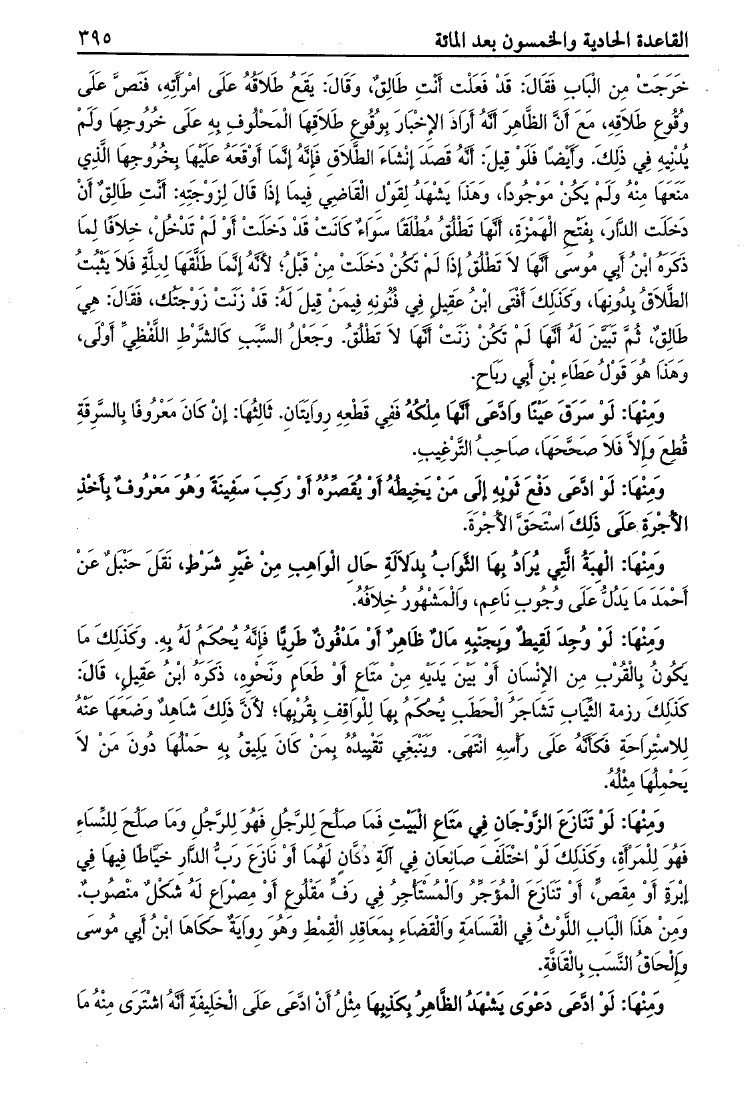 القاعدة الحادية والخمسون بعد المائة ٣٩٥
خَرَجَتْ مِن الْبَابِ فَقَالَ: قَدْ فَعَلْت أَنْتِ طَالِقٌ، وَقَالَ: يَقَعُ طَلَاقُهُ عَلَى امْرَأَتِهِ، فَنَصَّ عَلَى
وُقُوعِ طَلَاقِهِ، مَعَ أَنَّ الظَّاهِرَ أَنَّهُ أَرَادَ الإِخْبَارَ بِوُقُوعِ طَلَاقِهَا الْمَحْلُوفِ بِهِ عَلَى خُرُوجِهَا وَلَمْ
يُدْنِيهِ فِي ذَلِكَ. وَأَيْضًا فَلَوْ قِيلَ: أَنَّهُ قَصَدَ إِنْشَاءَ الطَّلَاقِ فَإِنَّهُ إِنَّمَا أَوْقَعَهُ عَلَيْهَا بِخُرُوجِهَا الَّذِي
مَنَعَهَا مِنْهُ وَلَمْ يَكُنْ مَوْجُودًا، وَهَذَا يَشْهَدُ لِقَوْلِ الْقَاضِي فِيمَا إِذَا قَالَ لِزَوْجَتِهِ: أَنْتِ طَالِقٌ أَنْ
دَخَلَت الدَّارَ، بِفَتْحِ الْهَمْزَةِ، أَنَّهَا تَطْلُقُ مُطْلَقًا سَوَاءٌ كَانَتْ قَدْ دَخَلَتْ أَوْ لَمْ تَدْخُلْ، خِلَافًا لِمَا
ذَكَرَهُ ابْنُ أَبِي مُوسَى أَنَّهَا لاَ تَطْلُقُ إِذَا لَمْ تَكُنْ دَخَلَتْ مِنْ قَبْلُ؛ لأَنَّهُ إِنَّمَا طَلَّقَهَا لِعِلَّةٍ فَلاَ يَثْبُتُ
الطَّلَاقُ بِدُونِهَا، وَكَذَلِكَ أَفْتَى ابْنُ عَقِيلٍ فِي فُنُونِهِ فِيمَنْ قِيلَ لَهُ: قَدْ زَنَت زَوْجَتُك، فَقَالَ: هِيَ
طَالِقٌ، ثُمَّ تَبَيَّنَ لَهُ أَنَّهَا لَمْ تَكُنْ زَنَتْ أَنَّهَا لاَ تَطْلُقُ. وَجَعْلُ السَّبَبِ كَالشَّرْطِ اللَّفْظِيِّ أَوْلَى،
وَهَذَا هُوَ قَوْلُ عَطَاءِ بْنِ أَبِي رَبَاحٍ.
وَمِنْهَا: لَوْ سَرَقَ عَيْنًا وَادَّعَى أَنَّهَا مِلْكُهُ فَفِي قَطْعِهِ رِوَايَتَانِ. ثَالِثُهَا: إِنْ كَانَ مَعْرُوفًا بِالسَّرِقَةِ
قُطِعَ وَإِلاَّ فَلاَ صَحَّحَهَا، صَاحِبُ التَّرْغِيبِ.
وَمِنْهَا: لَوْ ادَّعَى دَفْعَ ثَوْبِهِ إِلَى مَنْ يَخِيطُهُ أَوْ يُقَصِّرُهُ أَوْ رَكِبَ سَفِينَةً وَهُوَ مَعْرُوفٌ بِأَخْذِ
الأُجْرَةِ عَلَى ذَلِكَ اسْتَحَقَّ الأُجْرَةَ.
وَمِنْهَا: الْهِبَةُ الَّتِي يُرَادُ بِهَا الثَّوَابُ بِدَلَالَةِ حَالِ الْوَاهِبِ مِنْ غَيْرِ شَرْطٍ، نَقَلَ حَنْبَلٌ عَنْ
أَحْمَدَ مَا يَدُلُّ عَلَى وُجُوبِ نَاعِمٍ، وَالْمَشْهُورُ خِلَافُهُ.
وَمِنْهَا: لَوْ وُجِدَ لَقِيطٌ وَبِجَنْبِهِ مَالٌ ظَاهِرٌ أَوْ مَدْفُونٌ طَرِيًّا فَإِنَّهُ يُحْكَمُ لَهُ بِهِ. وَكَذَلِكَ مَا
يَكُونُ بِالْقُرْبِ مِن الإِنْسَانِ أَوْ بَيْنَ يَدَيْهِ مِنْ مَتَاعٍ أَوْ طَعَامٍ وَنَحْوِهِ، ذَكَرَهُ ابْنُ عَقِيلٍ، قَالَ:
كَذَلِكَ رِزمة الثِّيَابِ تَشَاجَرُ الْحَطَبِ يُحْكَمُ بِهَا لِلْوَاقِفِ بِقُرْبِهَا؛ لأَنَّ ذَلِكَ شَاهِدٌ وَضَعَهَا عَنْهُ
لِلاسْتِرَاحَةِ فَكَأَنَّهُ عَلَى رَأْسِهِ انْتَهَى. وَيَنْبَغِي تَقْيِيدُهُ بِمَنْ كَانَ يَلِيقُ بِهِ حَمْلُهَا دُونَ مَنْ لاَ
يَحْمِلُهَا مِثْلُهُ.
وَمِنْهَا: لَوْ تَنَازَعَ الزَّوْجَانِ فِي مَتَاعِ الْبَيْتِ فَمَا صَلُحَ لِلرَّجُلِ فَهُوَ لِلرَّجُلِ وَمَا صَلُحَ لِلنِّسَاءِ
فَهُوَ لِلْمَرْأَةِ، وَكَذَلِكَ لَوْ اخْتَلَفَ صَانِعَانِ فِي آلَةِ دُكَّانٍ لَهُمَا أَوْ نَازَعَ رَبُّ الدَّارِ خَيَّاطًا فِيهَا فِي
إِبْرَةٍ أَوْ مِقَصٍّ، أَوْ تَنَازَعَ الْمُؤَجِّرُ وَالْمُسْتَأْجِرُ فِي رَفٍّ مَقْلُوعٍ أَوْ مِصْرَاعٍ لَهُ شَكْلٌ مَنْصُوبٌ.
وَمِنْ هَذَا الْبَابِ اللَّوْثُ فِي الْقَسَامَةِ وَالْقَضَاءِ بِمَعَاقِدِ الْقِمْطِ وَهُوَ رِوَايَةٌ حَكَاهَا ابْنُ أَبِي مُوسَى
وَإِلْحَاقُ النَّسَبِ بِالْقَافَّةِ.
وَمِنْهَا: لَوْ ادَّعَى دَعْوَى يَشْهَدُ الظَّاهِرُ بِكَذِبِهَا مِثْلُ أَنْ ادَّعَى عَلَى الْخَلِيفَةِ أَنَّهُ اشْتَرَى مِنْهُ مَا